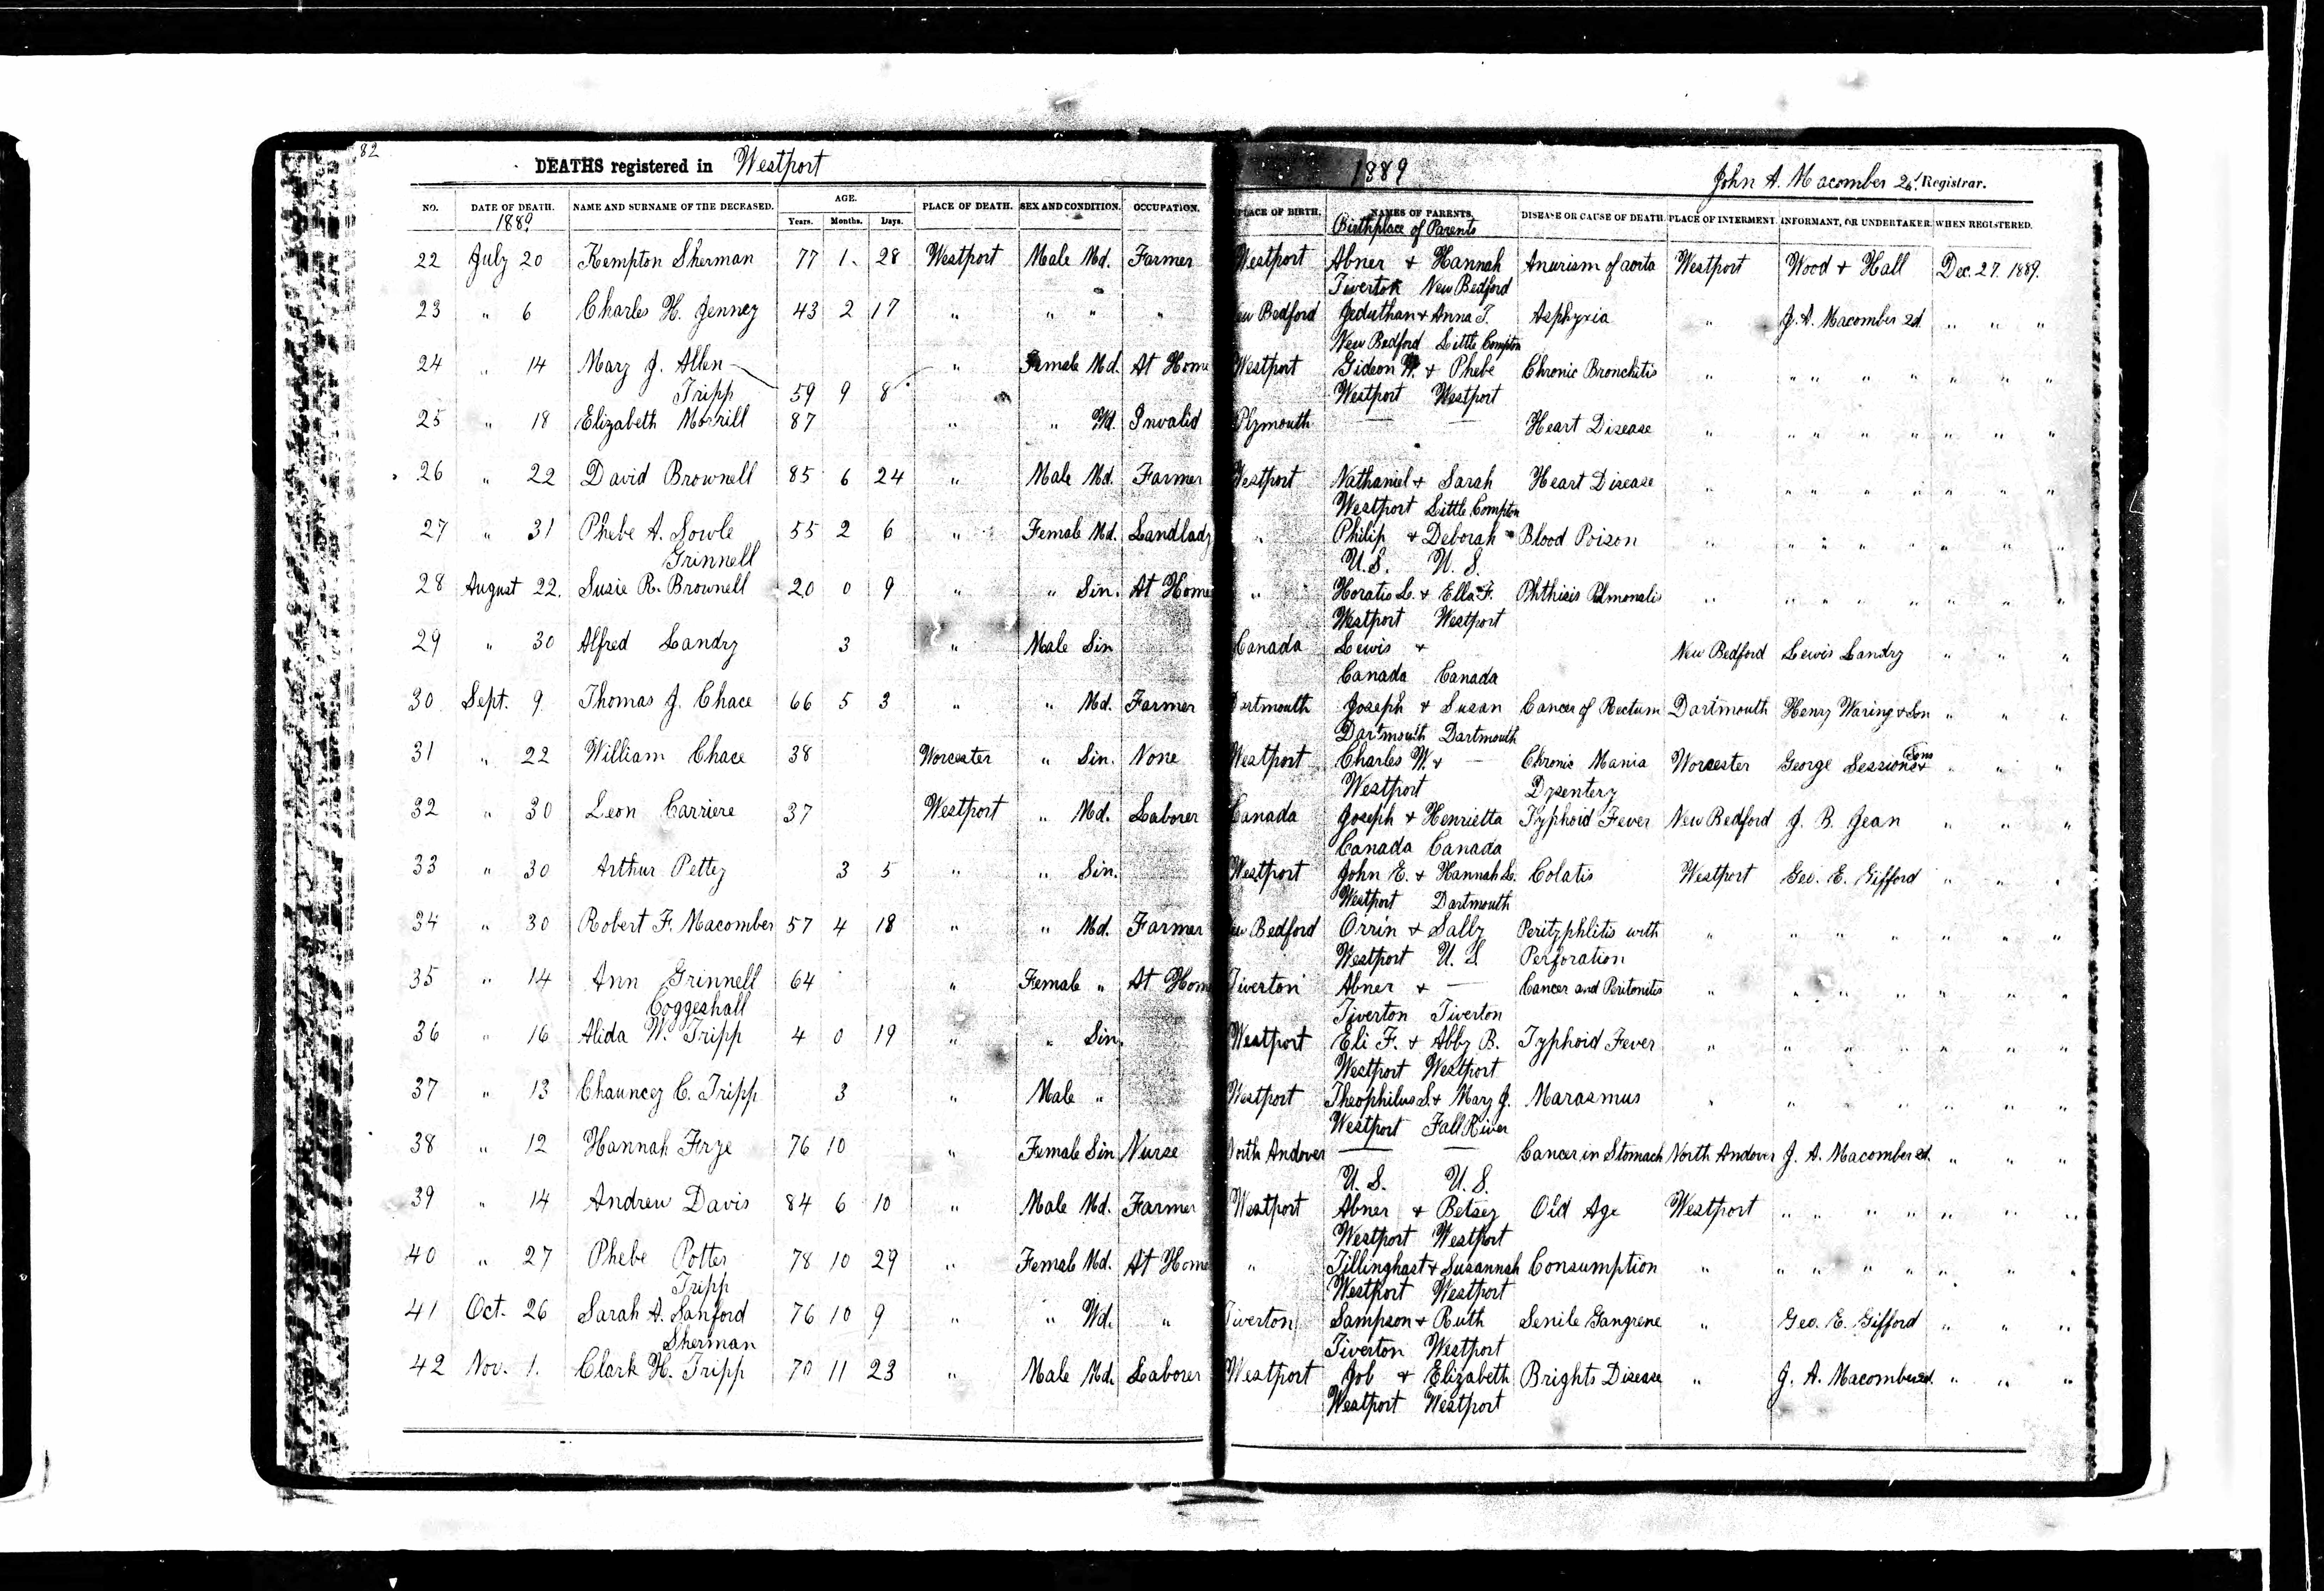 82
DEATHS registered in Westport 1889 John A. Macomber 2d. Registrar.
NO. DATE OF DEATH. NAME AND SURNAME OF THE DECEASED. AGE. PLACE OF DEATH. SEX AND CONDITION. OCCUPATION. PLACE OF BIRTH. NAMES OF PARENTS. DISEASE OR CAUSE OF DEATH. PLACE OF INTERMENT. INFORMANT, OR UNDERTAKER. WHEN REGISTERED.
1889 Years. Months. Days. Birthplace of Parents
22 July 20 Kempton Sherman 77 1 28 Westport Male Md. Farmer Westport Abner + Hannah Anurism of aorta Westport Wood + Hall Dec. 27. 1889.
Tiverton New Bedford
23 " 6 Charles H. Jenney 43 2 17 " " " " New Bedford Jeduthan + Anna T. Asphyxia " J. A. Macomber 2d " " "
New Bedford Little Compton
24 " 14 Mary J. Allen " Female Md. At Home Westport Gideon W. + Phebe Chronic Bronchitis " " " " " " " "
Tripp 59 9 8 Westport Westport
25 " 18 Elizabeth Morrill 87 " " Wd. Invalid Plymouth — — Heart Disease " " " " " " " "
26 " 22 David Brownell 85 6 24 " Male Md. Farmer Westport Nathaniel + Sarah Heart Disease " " " " " " " "
Westport Little Compton
27 " 31 Phebe A. Sowle 55 2 6 " Female Md. Landlady " Philip + Deborah Blood Poison " " " " " " " "
Grinnell U.S. U.S.
28 August 22. Susie R. Brownell 20 0 9 " " Sin. At Home " Horatio L. + Ella F. Phthisis Pulmonalis " " " " " " " "
Westport Westport
29 " 30 Alfred Landry 3 " Male Sin Canada Lewis + New Bedford Lewis Landry " " "
Canada Canada
30 Sept. 9 Thomas J. Chace 66 5 3 " " Md. Farmer Dartmouth Joseph + Susan Cancer of Rectum Dartmouth Henry Waring + Son " " "
Dartmouth Dartmouth
31 " 22 William Chace 38 Worcester " Sin. None Westport Charles W. + — Chronic Mania Worcester George Sessions + Sons " " "
Westport Dysentery
32 " 30 Leon Carriere 37 Westport " Md. Laborer Canada Joseph + Henrietta Typhoid Fever New Bedford J. B. Jean " " "
Canada Canada
33 " 30 Arthur Pettey 3 5 " " Sin. Westport John E. + Hannah L. Colatis Westport Geo. E. Gifford " " "
Westport Dartmouth
34 " 30 Robert F. Macomber 57 4 18 " " Md. Farmer New Bedford Orrin + Sally Perityphlitis with " " " " " " "
Westport U.S. Perforation
35 " 14 Ann Grinnell 64 " Female " At Home Tiverton Abner + — Cancer and Peritonitis " " " " " " "
Coggeshall Tiverton Tiverton
36 " 16 Alida W. Tripp 4 0 19 " " Sin. Westport Eli F. + Abby B. Typhoid Fever " " " " " " "
Westport Westport
37 " 13 Chauncey C. Tripp 3 " Male " Westport Theophilus S. + Mary J. Marasmus " " " " " " "
Westport Fall River
38 " 12 Hannah Frye 76 10 " Female Sin Nurse North Andover — — Cancer in Stomach North Andover J. A. Macomber 2d. " " "
U.S. U.S.
39 " 14 Andrew Davis 84 6 10 " Male Md. Farmer Westport Abner + Betsey Old Age Westport " " " " " " "
Westport Westport
40 " 27 Phebe Potter 78 10 29 " Female Md. At Home " Tillinghast + Susannah Consumption " " " " " " " "
Tripp Westport Westport
41 Oct. 26 Sarah A. Sanford 76 10 9 " " Wd. " Tiverton Sampson + Ruth Senile Gangrene " Geo. E. Gifford " " "
Sherman Tiverton Westport
42 Nov. 1. Clark H. Tripp 70 11 23 " Male Md. Laborer Westport Job + Elizabeth Brights Disease " J. A. Macomber 2d. " " "
Westport Westport